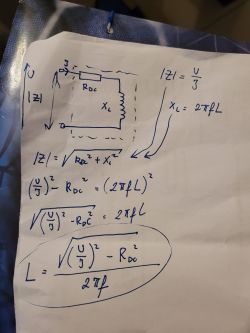 U
|Z|
R_DC
X_L
|Z| = U/J
X_L = 2πfL
|Z| = √(R_DC² + X_L²)
(U/J)² - R_DC² = (2πfL)²
√((U/J)² - R_DC²) = 2πfL
L = √((U/J)² - R_DC²) / 2πf